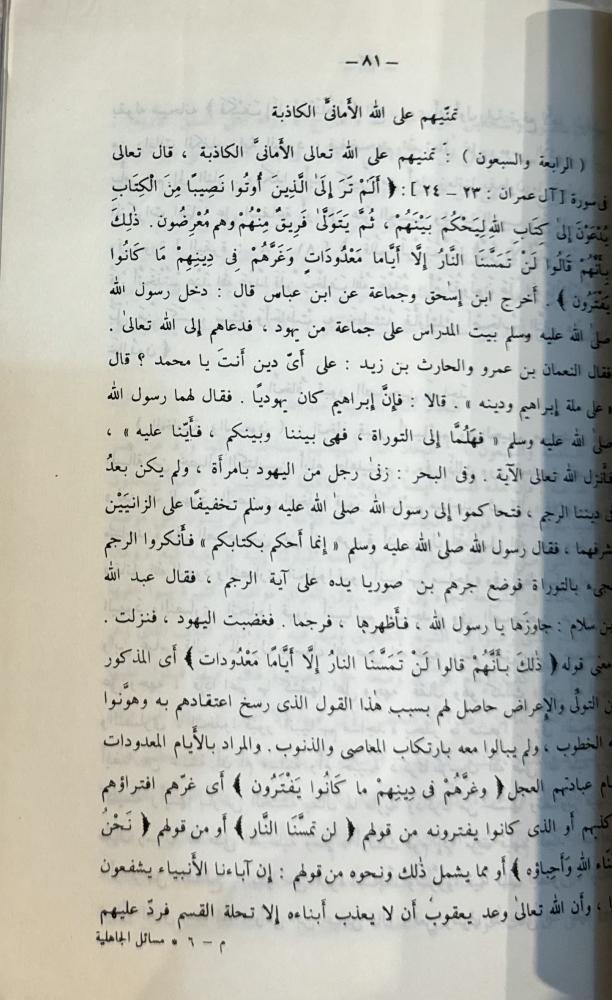 — ٨١ —
تمنّيهم على الله الأمانىَّ الكاذبة
( الرابعة والسبعون ) : تمنيهم على الله تعالى الأمانىَّ الكاذبة ، قال تعالى
فى سورة [ آل عمران : ٢٣ – ٢٤ ] : ﴿ أَلَمْ تَرَ إِلَىٰ الَّذِينَ أُوتُوا نَصِيبًا مِنَ الْكِتَابِ
يُدْعَوْنَ إِلىٰ كِتَابِ اللهِ لِيَحْكُمَ بَيْنَهُمْ ، ثُمَّ يَتَوَلَّىٰ فَرِيقٌ مِنْهُمْ وهم مُعْرِضُون . ذٰلِكَ
بِأَنَّهُمْ قَالُوا لَنْ تَمَسَّنَا النَّارُ إِلَّا أَيَّاما مَعْدُودَاتٍ وَغَرَّهُمْ فِى دِينِهِمْ مَا كَانُوا
يَفْتَرُون ﴾ . أخرج ابن إسحٰق وجماعة عن ابن عباس قال : دخل رسول الله
صلىٰ الله عليه وسلم بيت المدراس على جماعة من يهود ، فدعاهم إلى الله تعالىٰ .
فقال النعمان بن عمرو والحارث بن زيد : على أىّ دين أنتَ يا محمد ؟ قال
« على ملة إبراهيم ودينه » . قالا : فإنَّ إبراهيم كان يهوديًا . فقال لهما رسول الله
صلىٰ الله عليه وسلم « فهَلُمَّا إلى التوراة ، فهى بيننا وبينكم ، فأَبَيَا عليه » ،
فأنزل الله تعالىٰ الآية . وفى البحر : زنىٰ رجل من اليهود بامرأة ، ولم يكن بعدُ
فى ديننا الرجم ، فتحاكموا إلى رسول الله صلىٰ الله عليه وسلم تخفيفًا على الزانيَيْن
لشرفهما ، فقال رسول الله صلىٰ الله عليه وسلم « إنما أحكم بكتابكم » فأنكروا الرجم
فجىء بالتوراة فوضع جرهم بن صوريا يده على آية الرجم ، فقال عبد الله
بن سلام : جاوزَها يا رسول الله ، فأظهرها ، فرجما . فغضبت اليهود ، فنزلت .
ومعنى قوله ﴿ ذٰلكَ بِأَنَّهُمْ قالوا لَنْ تَمَسَّنَا النارُ إلَّا أَيَّامًا مَعْدُودات ﴾ أى المذكور
من التولّى والإعراض حاصل لهم بسبب هٰذا القول الذى رسخ اعتقادهم به وهوَّنوا
الخطوب ، ولم يبالوا معه بارتكاب المعاصى والذنوب . والمراد بالأيام المعدودات
أيام عبادتهم العجل ﴿ وغرَّهُمْ فى دِينِهِمْ ما كَانُوا يَفْتَرُون ﴾ أى غرّهم افتراؤهم
وكذبهم أو الذى كانوا يفترونه من قولهم ﴿ لن تمسَّنَا النَّار ﴾ أو من قولهم ﴿ نَحْنُ
أبناء اللهِ وَأَحِبَّاؤه ﴾ أو مما يشمل ذٰلك ونحوه من قولهم : إن آباءنا الأنبياء يشفعون
لنا ، وأن الله تعالىٰ وعد يعقوبَ أن لا يعذب أبناءه إلا تحلة القسم فردّ عليهم
م – ٦ * مسائل الجاهلية